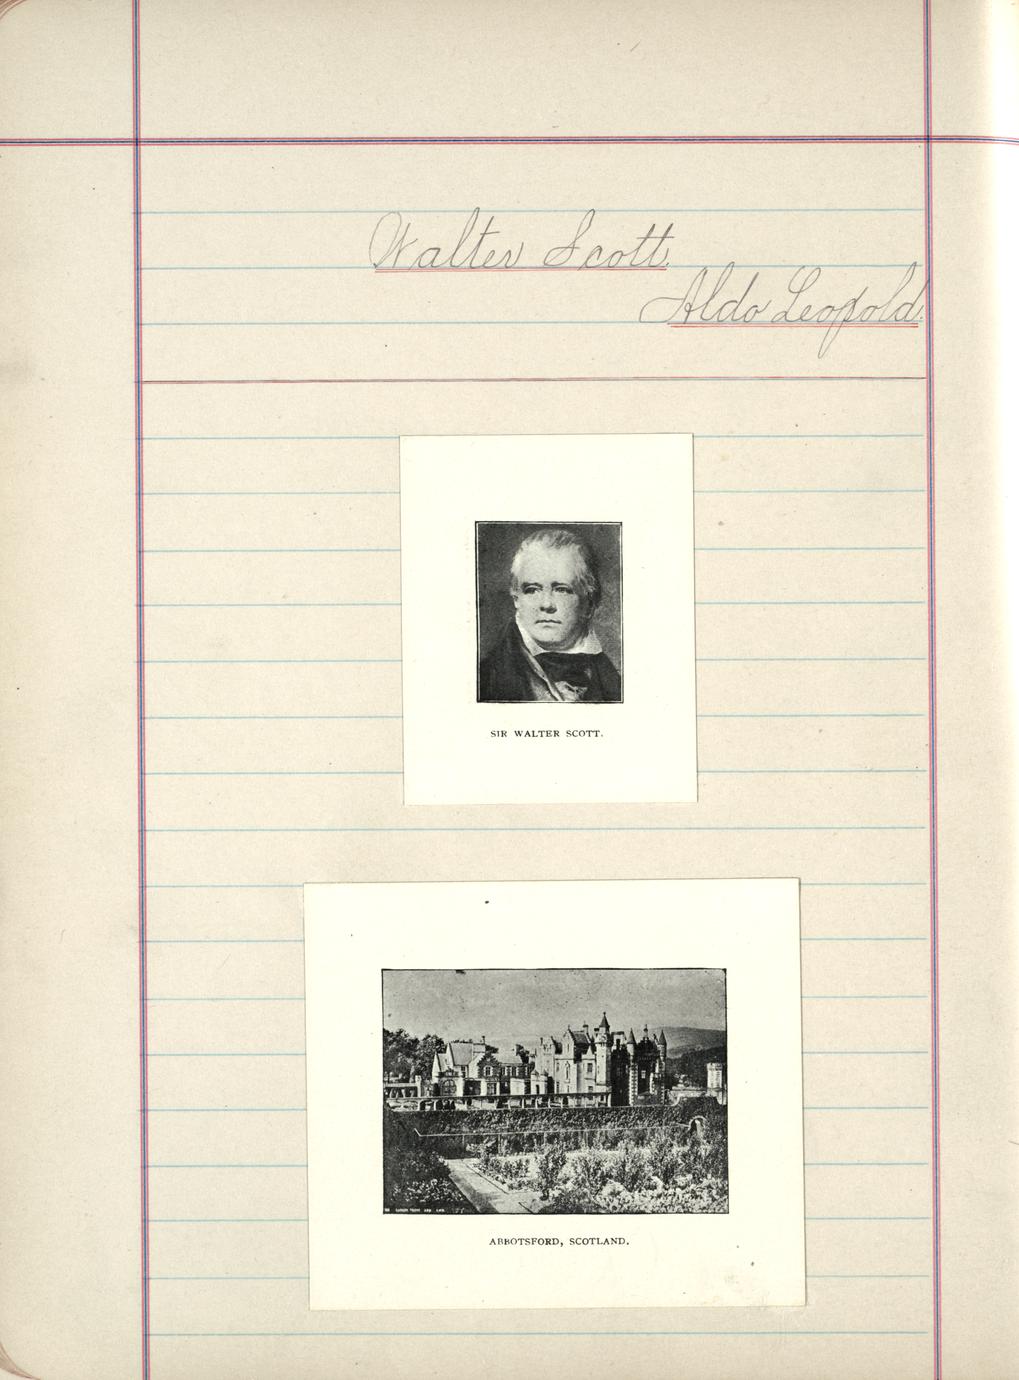 Walter Scott.
Aldo Leopold.
SIR WALTER SCOTT.
ABBOTSFORD, SCOTLAND.